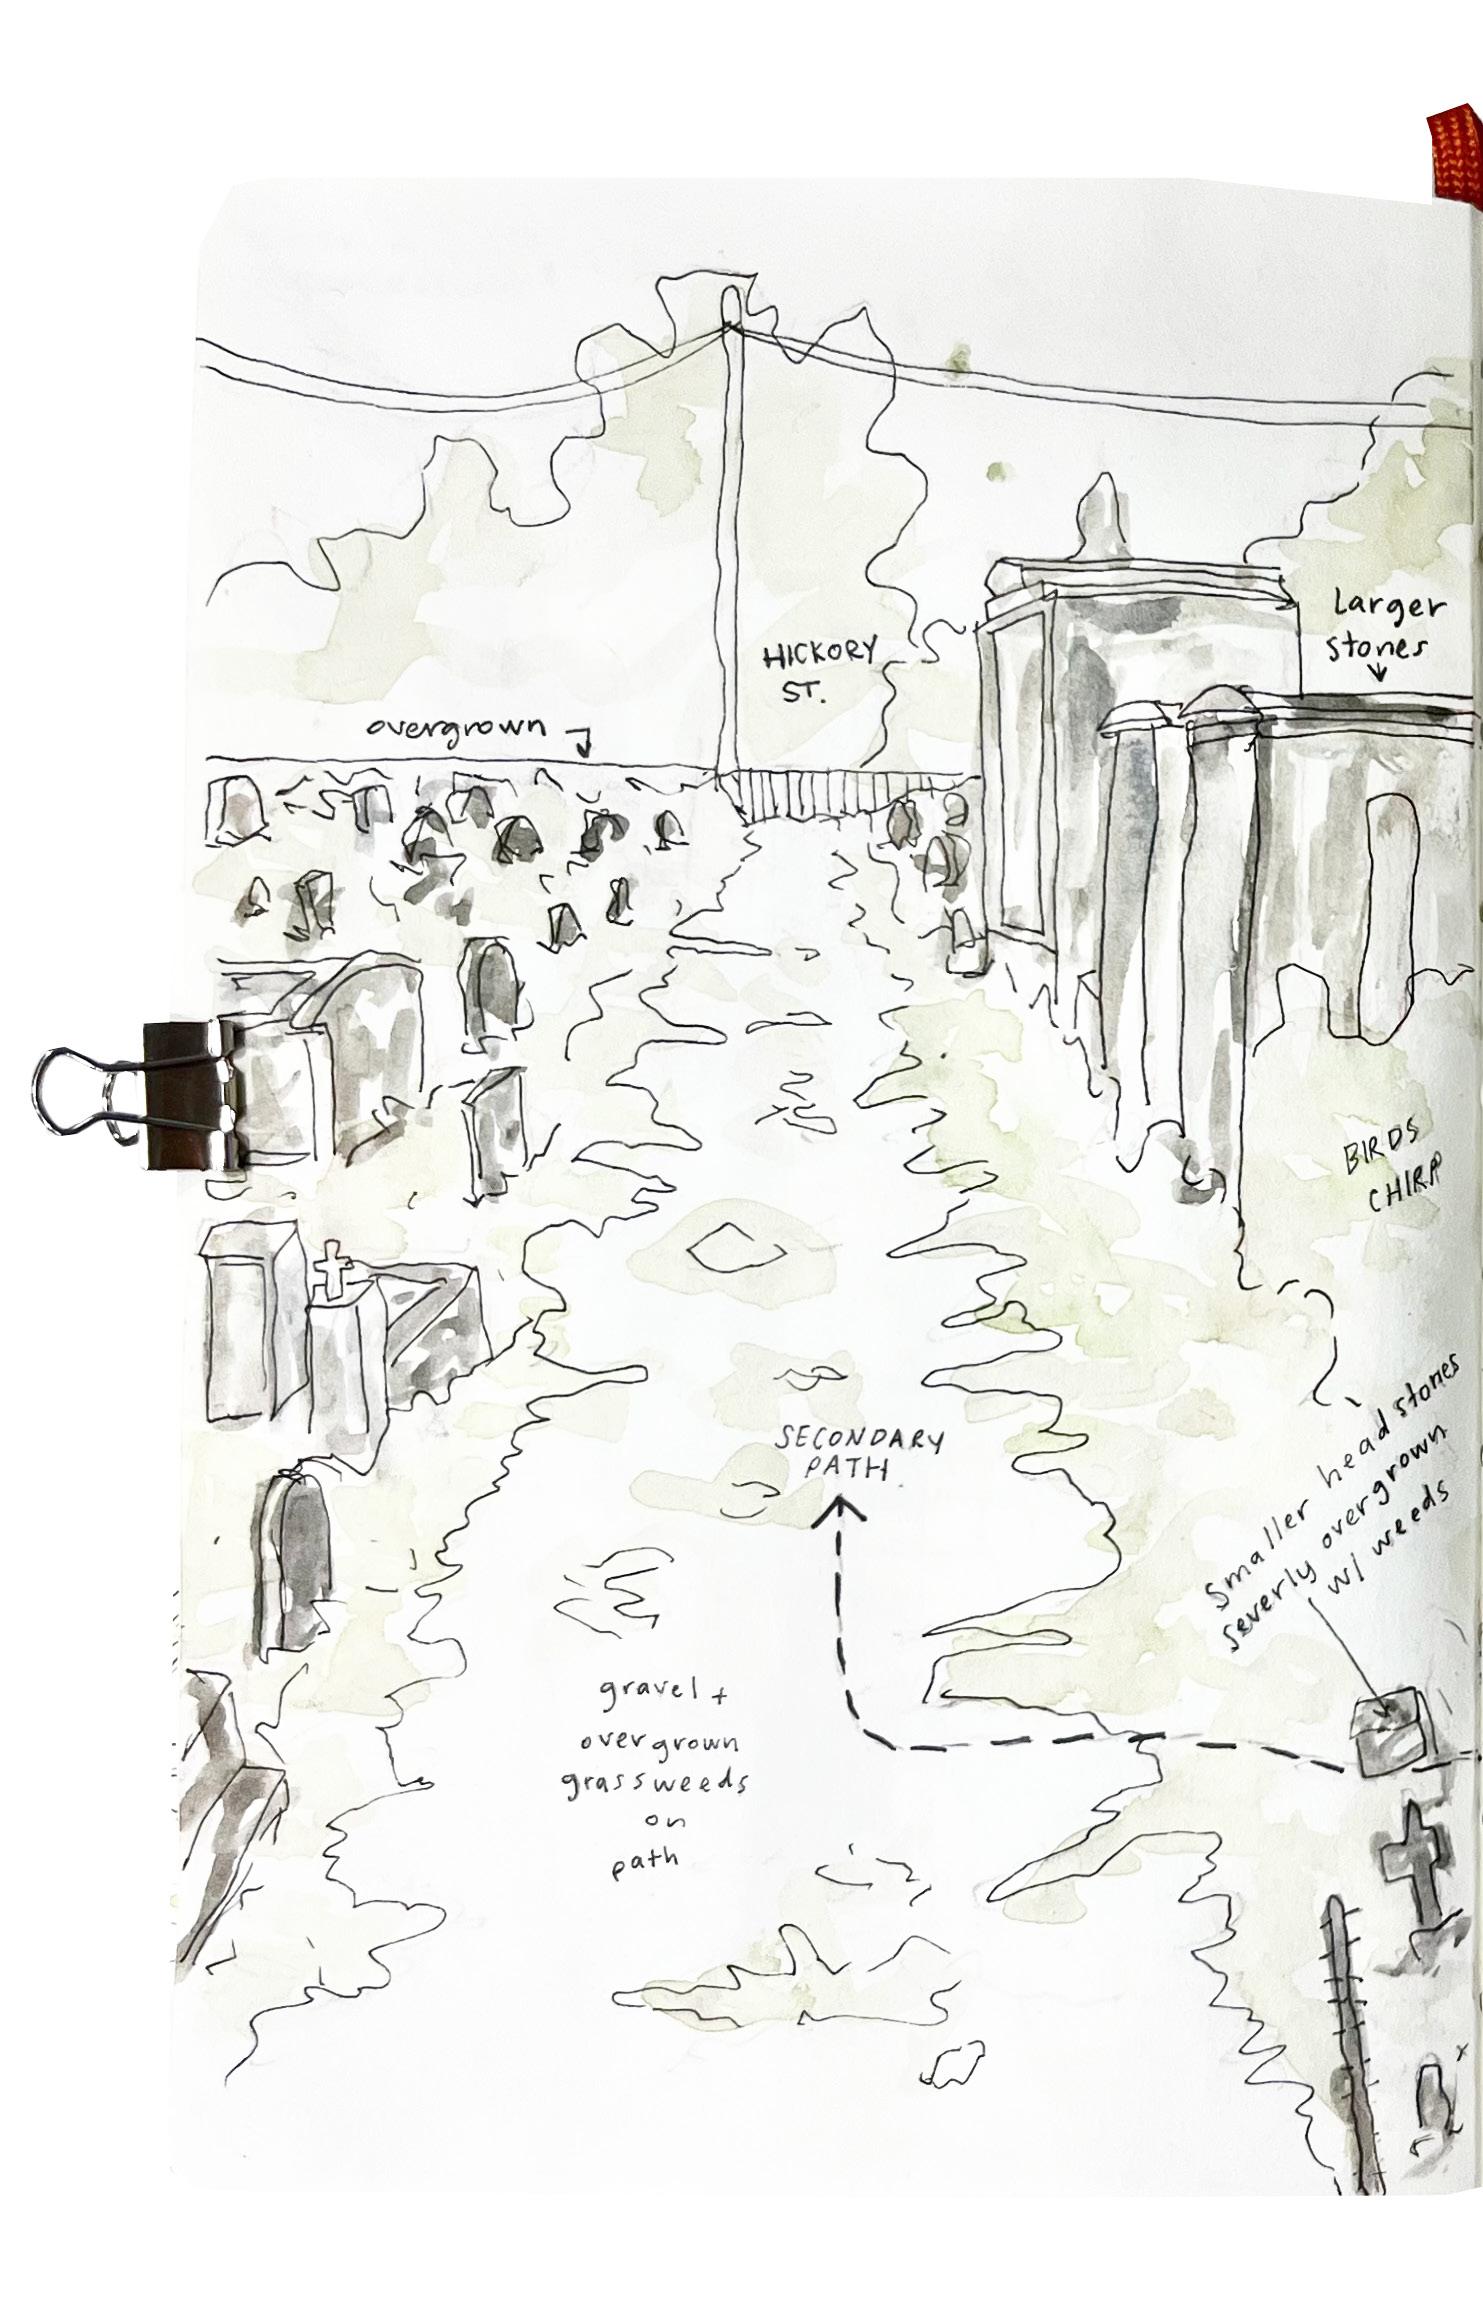 HICKORY
ST.
Larger
stones
overgrown
BIRDS
CHIRP
SECONDARY
PATH
smaller headstones
severly overgrown
w/ weeds
gravel +
overgrown
grassweeds
on
path